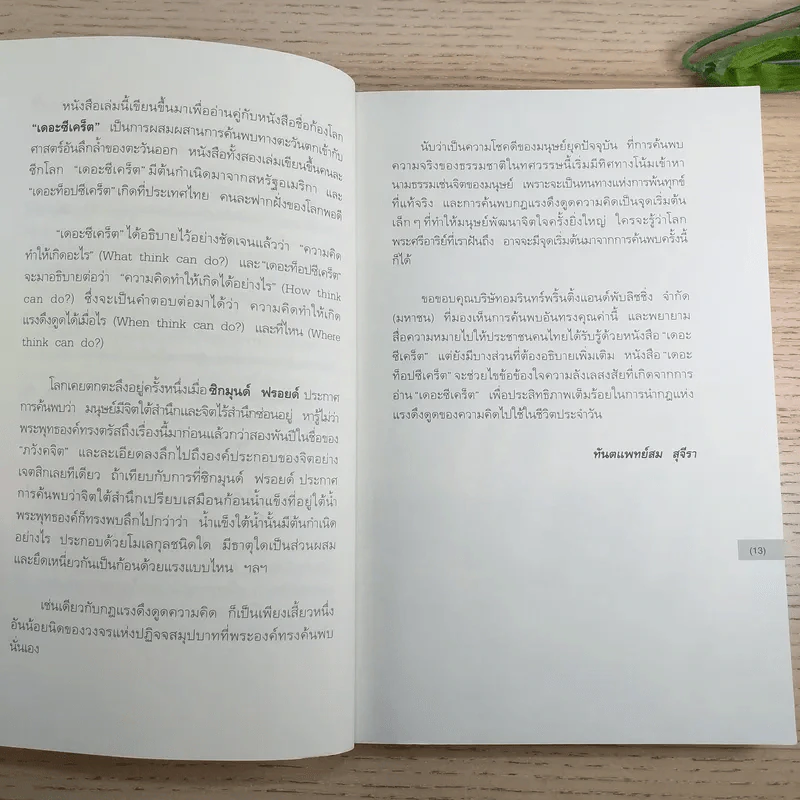 หนังสือเล่มนี้เขียนขึ้นมาเพื่ออ่านคู่กับหนังสือชื่อก้องโลก
“เดอะซีเคร็ต” เป็นการผสมผสานการค้นพบทางตะวันตกเข้ากับ
ศาสตร์อันลึกล้ำของตะวันออก หนังสือทั้งสองเล่มเขียนขึ้นคนละ
ซีกโลก “เดอะซีเคร็ต” มีต้นกำเนิดมาจากสหรัฐอเมริกา และ
“เดอะท็อปซีเคร็ต” เกิดที่ประเทศไทย คนละฟากฝั่งของโลกพอดี
“เดอะซีเคร็ต” ได้อธิบายไว้อย่างชัดเจนแล้วว่า “ความคิด
ทำให้เกิดอะไร” (What think can do?) และ “เดอะท็อปซีเคร็ต”
จะมาอธิบายต่อว่า “ความคิดทำให้เกิดได้อย่างไร” (How think
can do?) ซึ่งจะเป็นคำตอบต่อมาได้ว่า ความคิดทำให้เกิด
แรงดึงดูดได้เมื่อไร (When think can do?) และที่ไหน (Where
think can do?)
โลกเคยตกตะลึงอยู่ครั้งหนึ่งเมื่อ ซิกมุนด์ ฟรอยด์ ประกาศ
การค้นพบว่า มนุษย์มีจิตใต้สำนึกและจิตไร้สำนึกซ่อนอยู่ หารู้ไม่ว่า
พระพุทธองค์ทรงตรัสถึงเรื่องนี้มาก่อนแล้วกว่าสองพันปีในชื่อของ
“ภวังคจิต” และละเอียดลงลึกไปถึงองค์ประกอบของจิตอย่าง
เจตสิกเลยทีเดียว ถ้าเทียบกับการที่ซิกมุนด์ ฟรอยด์ ประกาศ
การค้นพบว่าจิตใต้สำนึกเปรียบเสมือนก้อนน้ำแข็งที่อยู่ใต้น้ำ
พระพุทธองค์ก็ทรงพบลึกไปกว่าว่า น้ำแข็งใต้น้ำนั้นมีต้นกำเนิด
อย่างไร ประกอบด้วยโมเลกุลชนิดใด มีธาตุใดเป็นส่วนผสม
และยึดเหนี่ยวกันเป็นก้อนด้วยแรงแบบไหน ฯลฯ
เช่นเดียวกับกฎแรงดึงดูดความคิด ก็เป็นเพียงเสี้ยวหนึ่ง
อันน้อยนิดของวงจรแห่งปฏิจจสมุปบาทที่พระองค์ทรงค้นพบ
นั่นเอง
นับว่าเป็นความโชคดีของมนุษย์ยุคปัจจุบัน ที่การค้นพบ
ความจริงของธรรมชาติในทศวรรษนี้เริ่มมีทิศทางโน้มเข้าหา
นามธรรมเช่นจิตของมนุษย์ เพราะจะเป็นหนทางแห่งการพ้นทุกข์
ที่แท้จริง และการค้นพบกฎแรงดึงดูดความคิดเป็นจุดเริ่มต้น
เล็ก ๆ ที่ทำให้มนุษย์พัฒนาจิตใจครั้งยิ่งใหญ่ ใครจะรู้ว่าโลก
พระศรีอาริย์ที่เราฝันถึง อาจจะมีจุดเริ่มต้นมาจากการค้นพบครั้งนี้
ก็ได้
ขอขอบคุณบริษัทอมรินทร์พริ้นติ้งแอนด์พับลิชชิ่ง จำกัด
(มหาชน) ที่มองเห็นการค้นพบอันทรงคุณค่านี้ และพยายาม
สื่อความหมายไปให้ประชาชนคนไทยได้รับรู้ด้วยหนังสือ “เดอะ
ซีเคร็ต” แต่ยังมีบางส่วนที่ต้องอธิบายเพิ่มเติม หนังสือ “เดอะ
ท็อปซีเคร็ต” จะช่วยไขข้อข้องใจความลังเลสงสัยที่เกิดจากการ
อ่าน “เดอะซีเคร็ต” เพื่อประสิทธิภาพเต็มร้อยในการนำกฎแห่ง
แรงดึงดูดของความคิดไปใช้ในชีวิตประจำวัน
ทันตแพทย์สม สุจีรา
(13)